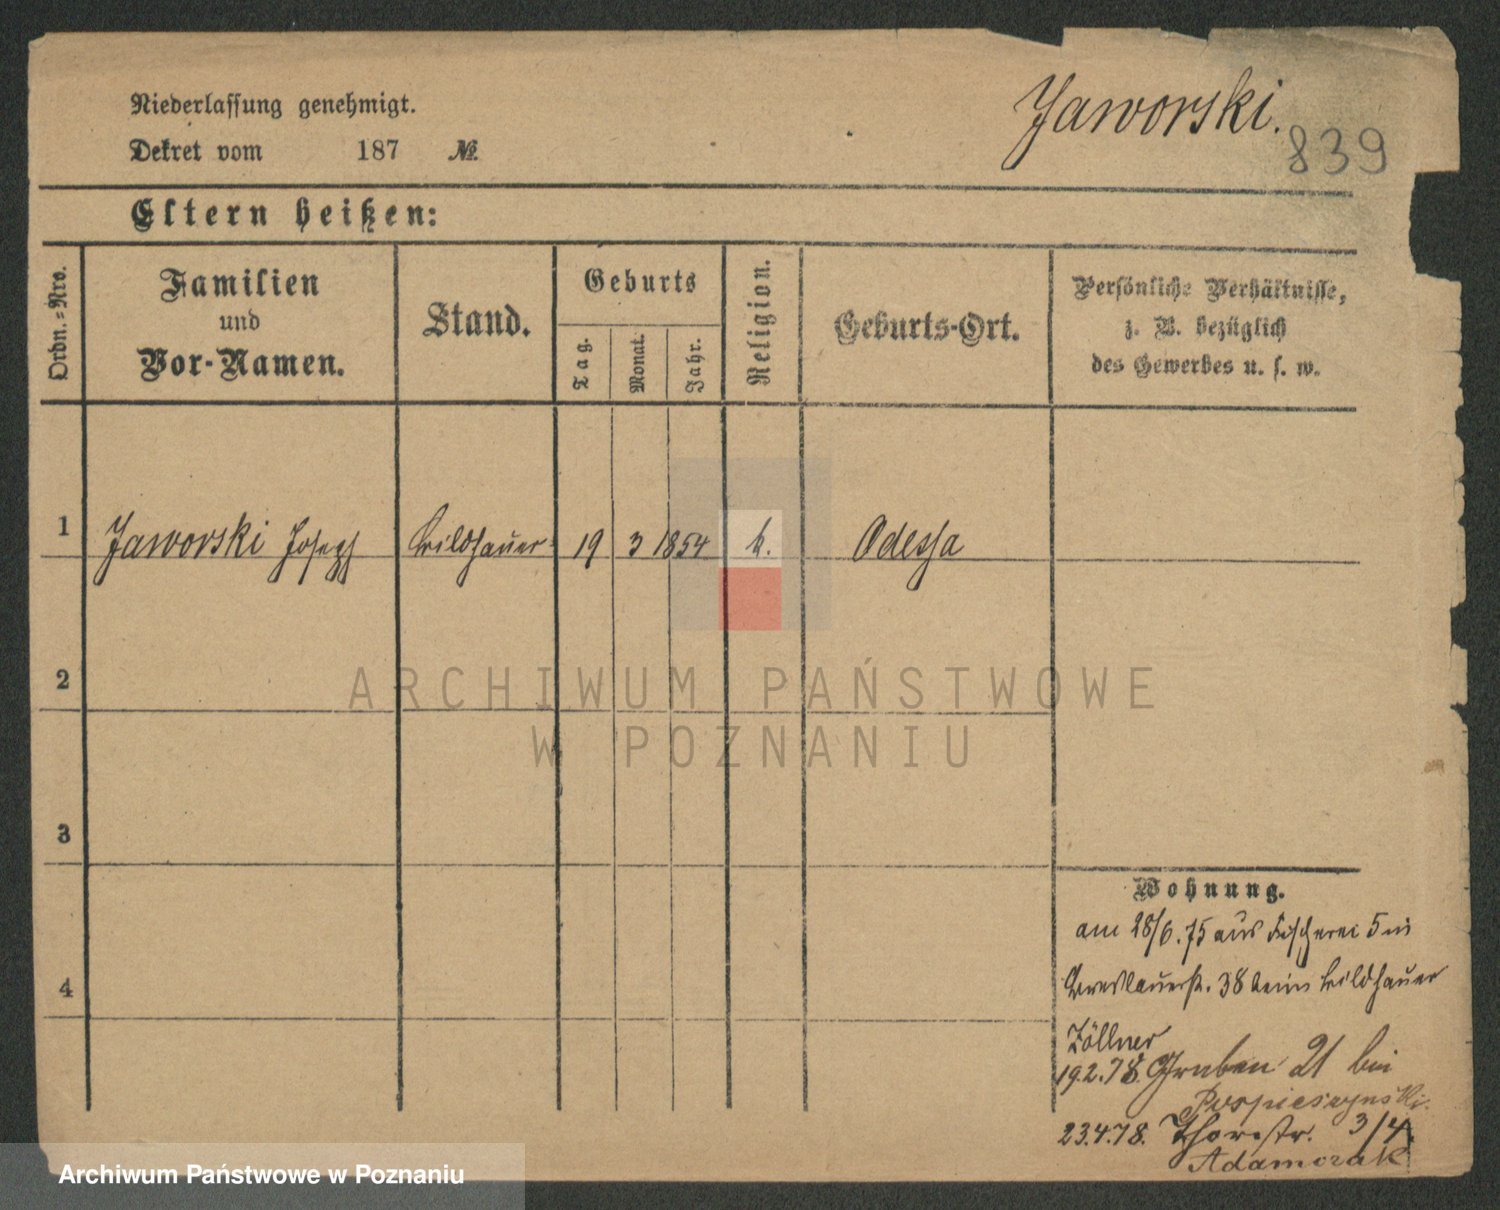 Niederlassung genehmigt.
Jaworski.
Dekret vom 187 №.
839
Eltern heißen:
Ordn.-Nro.
Familien
und
Vor-Namen.
Stand.
Geburts
Tag.
Monat.
Jahr.
Religion.
Geburts-Ort.
Persönliche Verhältnisse,
z. B. bezüglich
des Gewerbes u. s. w.
1 Jaworski Joseph Bildhauer 19 3 1854 k. Odessa
2
ARCHIWUM PAŃSTWOWE
W POZNANIU
3
Wohnung.
am 28/6.75 aus Fischerei 5 in
4
Breslauerst. 38 beim Bildhauer
Zöllner
19.2.78. Gruben 21 bei
Pospieszynski.
23.4.78. Thorstr. 3/4.
Adamczak
Archiwum Państwowe w Poznaniu